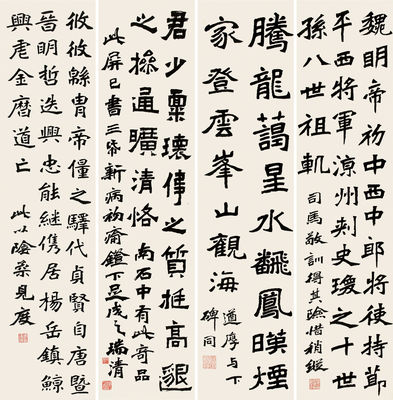 魏明帝初中西中郎將使持節
平西將軍涼州刺史瓊之十世
孫八世祖軌
司馬敬訓得其險惜稍
騰龍藹星水飜鳳暎煙
家登雲峯山觀海
与下
碑同
君少稟瓌偉之質挺高邈
之操通曠清恪
南石中有此奇品
此屏已書三帋新病初 鐙下足成之 瑞清
攸攸綿冑帝僮之驛代貞賢自唐暨
晉明哲迭興忠能継儁居楊岳鎮鯨
興虐金曆道亡
此以險 見度